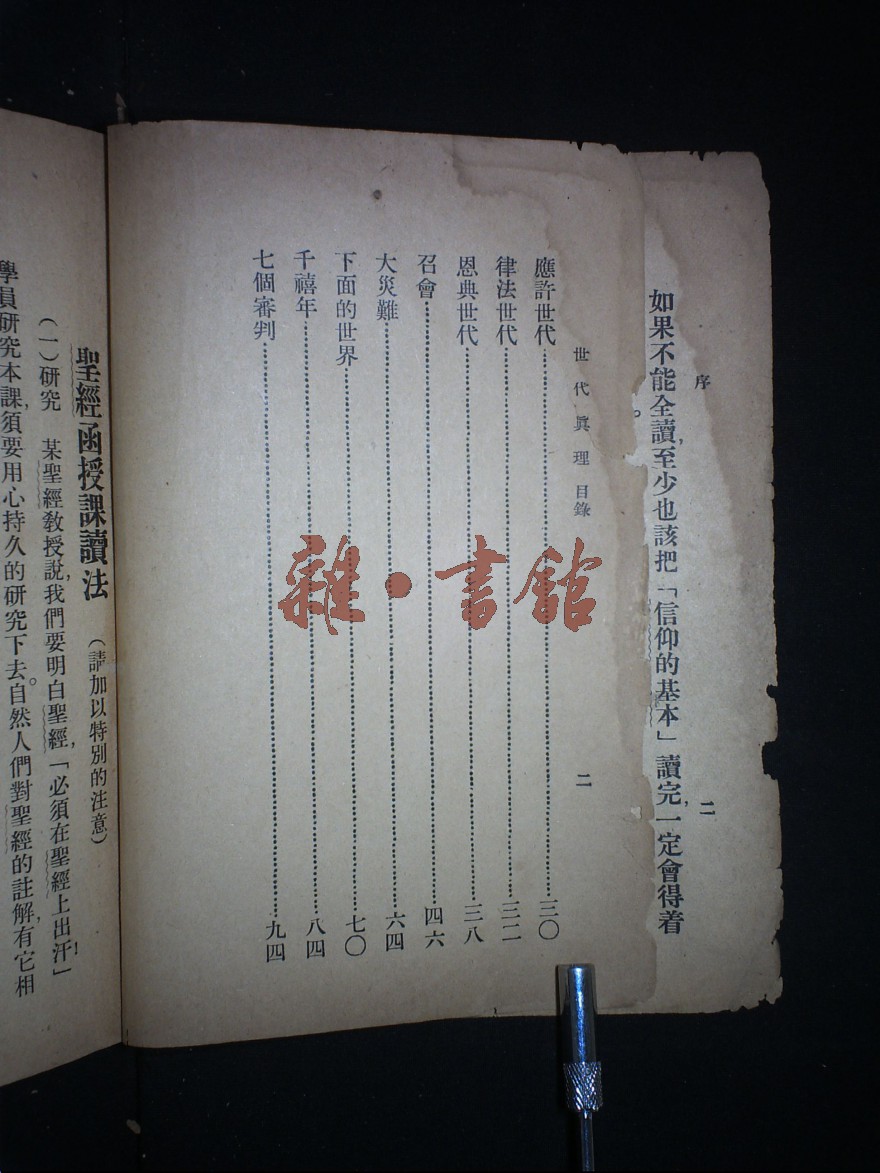 序
二
如果不能全讀,至少也該把「信仰的基本」讀完,一定會得着
。
世代眞理 目錄
二
應許世代……三〇
律法世代……三二
恩典世代……三八
召會……四六
大災難……六四
下面的世界……七〇
千禧年……八四
七個審判……九四
雜·書館
聖經函授課讀法(請加以特別的注意)
(一)研究 某聖經敎授說,我們要明白聖經,「必須在聖經上出汗」!
學員研究本課,須要用心持久的研究下去。自然人們對聖經的註解,有它相